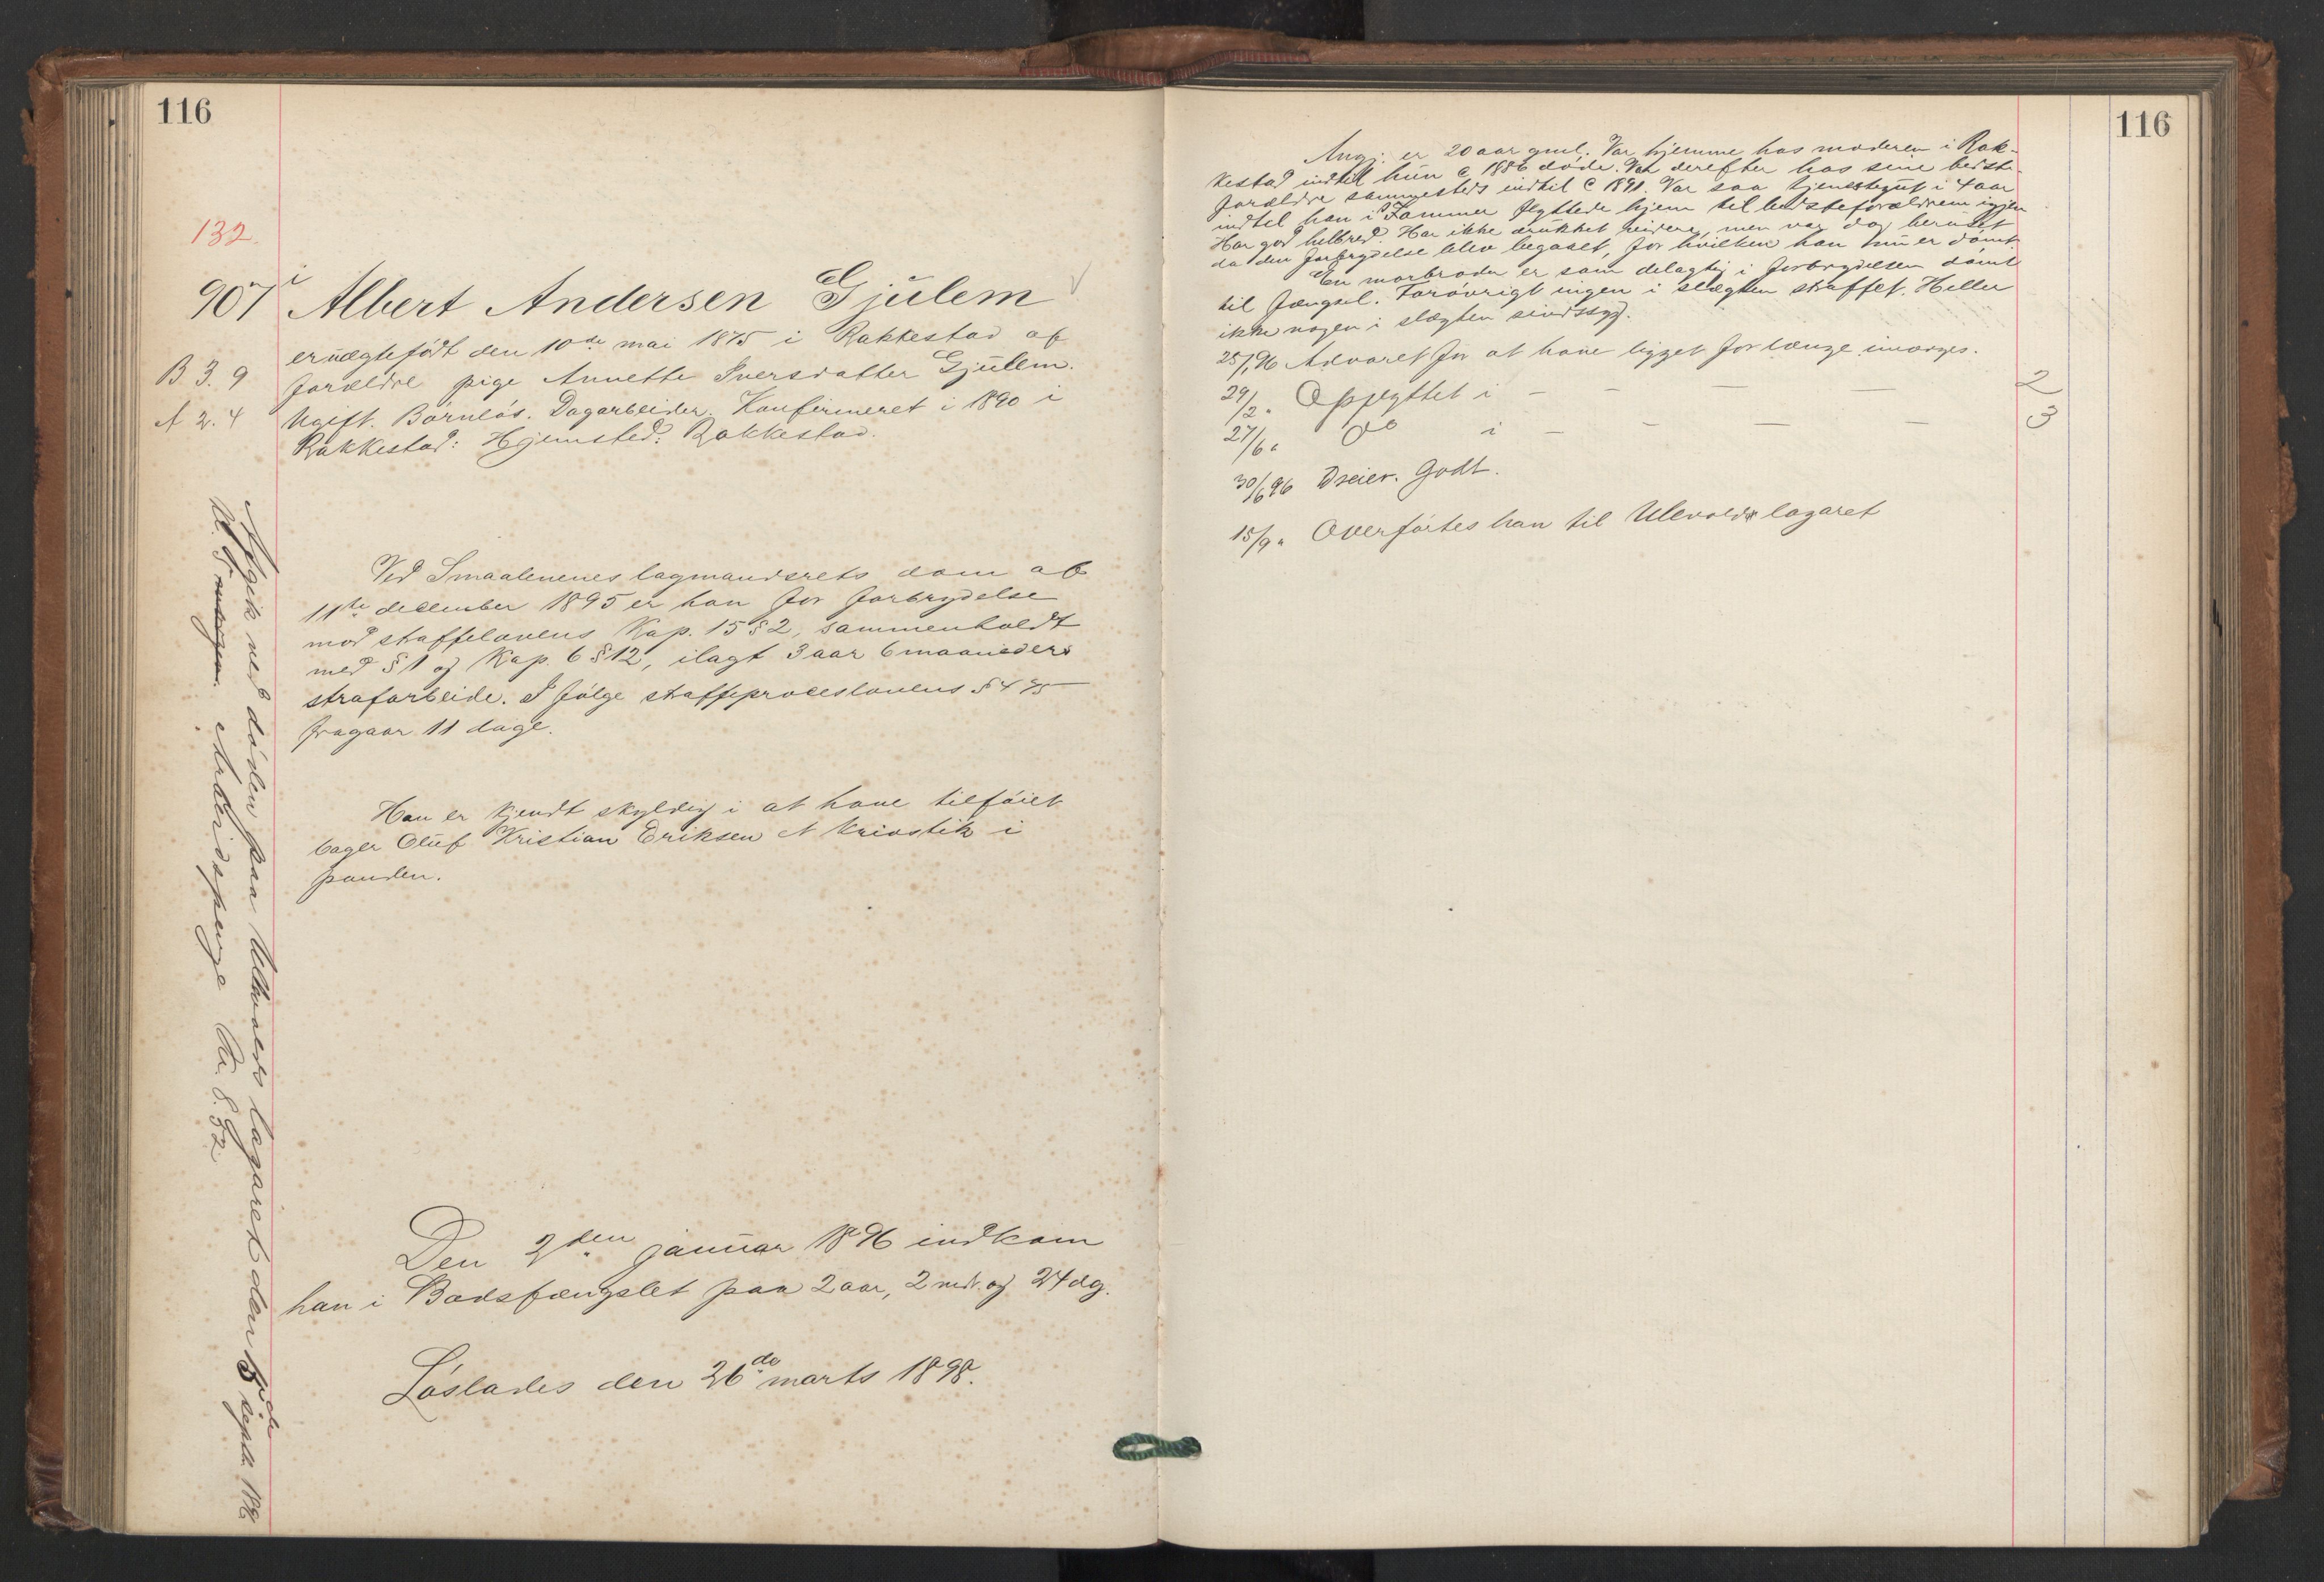 116
132.
907 Albert Andersen Gjulem
er uægtefödt den 10de mai 1875 i Rakkestad af
B 3. 9 forældre pige Annette Iversdatter Gjulem.
A 2. 4 Ugift. Barnlös. Dagarbeider. Konfirmeret i 1890 i
Rakkestad: Hjemsted: Rakkestad.
Ved Smaalenenes lagmandsrets dom af
11te december 1895 er han for forbrydelse
mod straffelovens Kap. 15 § 2, sammenholdt
med § 1 og Kap. 6 § 12, ilagt 3 aar 6 maaneders
strafarbeide. I fölge straffeproceslovens § 475
fragaar 11 dage.
Han er kjendt skyldig i at have tilföiet
bager Oluf Kristian Eriksen et knivstik i
panden.
Den 2den januar 1896 indkom
han i Bodsfængslet paa 2 aar, 2 mdr. og 24 dg.
Löslades den 26de marts 1898.
Afgik ved döden paa Ullevolds lazaret den de septb. 1896
Arbeidspenge Kr. 8.32
116
Angj. er 20 aar gml. Var hjemme hos moderen i Rak-
kestad indtil hun c 1886 döde. Var derefter hos sine bedste-
forældre sammesteds indtil c 1891. Var saa tjenestegut i 4 aar
indtil han i Sommer flyttede hjem til bedsteforældrene igjen
Har god helbred. Har ikke drukket videre, men var dog beruset
da den forbrydelse blev begaaet, for hvilken han nu er dömt.
En morbroder er som delagtig i forbrydelsen dömt
til fængsel. Forövrigt ingen i slægten straffet. Heller
ikke nogen i slægten sindssyg.
25/1 96 Advaret for at have ligget for længe imorges.
29/2 " Opflyttet i — — — — 2
27/6 " Do i — — — — 3
30/6 96 Dreier. Godt.
15/9 " Overförtes han til Ulevolds lazaret